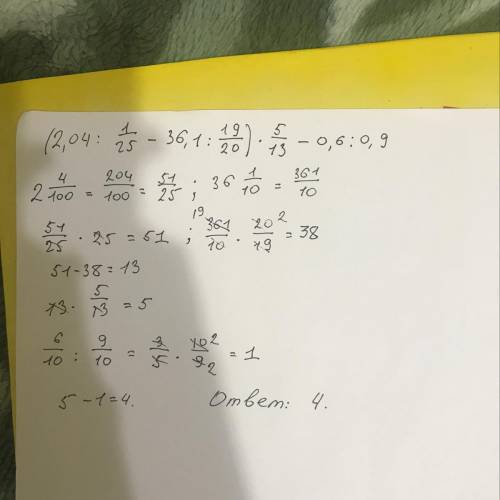 (2,04 : 1/25 - 36,1 : 19/20) · 5/13 - 0,6 : 0,9
2 4/100 = 204/100 = 51/25 ; 36 1/10 = 361/10
51/25 · 25 = 51 ; 19 361/10 · 20/19 2 = 38
51-38=13
13 · 5/13 = 5
6/10 : 9/10 = 3/5 · 10/9 2 2 = 1
5-1=4. Ответ: 4.